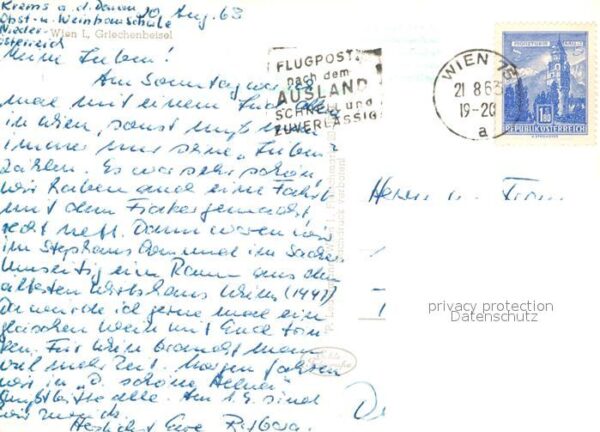 Krems a. d. Donau 20 Aug. 63
Obst- u. Weinbauschule
Nieder-
österreich
Wien I., Griechenbeisel
Meine Lieben!
Am Sonntag war ich
mal mit einem
in Wien, sonst muß man
immer nur seine
zählen. Es war sehr schön,
wir haben auch eine Fahrt
mit dem Fiaker gemacht,
recht nett. Dann waren wir
im Stephansdom und im Sacher.
Umseitig ein Raum aus dem
ältesten Wirtshaus Wiens
Da würde ich gerne mal ein
Gläschen Wein mit Euch trin-
ken. Für Wien braucht man
viel mehr Zeit. Morgen fahren
wir in "D. schöne Helena"
Am 1.9. sind
wir zurück.
Herzlichst Eure Barbara.
FLUGPOST
nach dem
AUSLAND
SCHNELL und
ZUVERLÄSSIG
WIEN
21. 8. 63
19-20
a
1.80
REPUBLIK ÖSTERREICH
Herrn u. Frau
privacy protection
Datenschutz